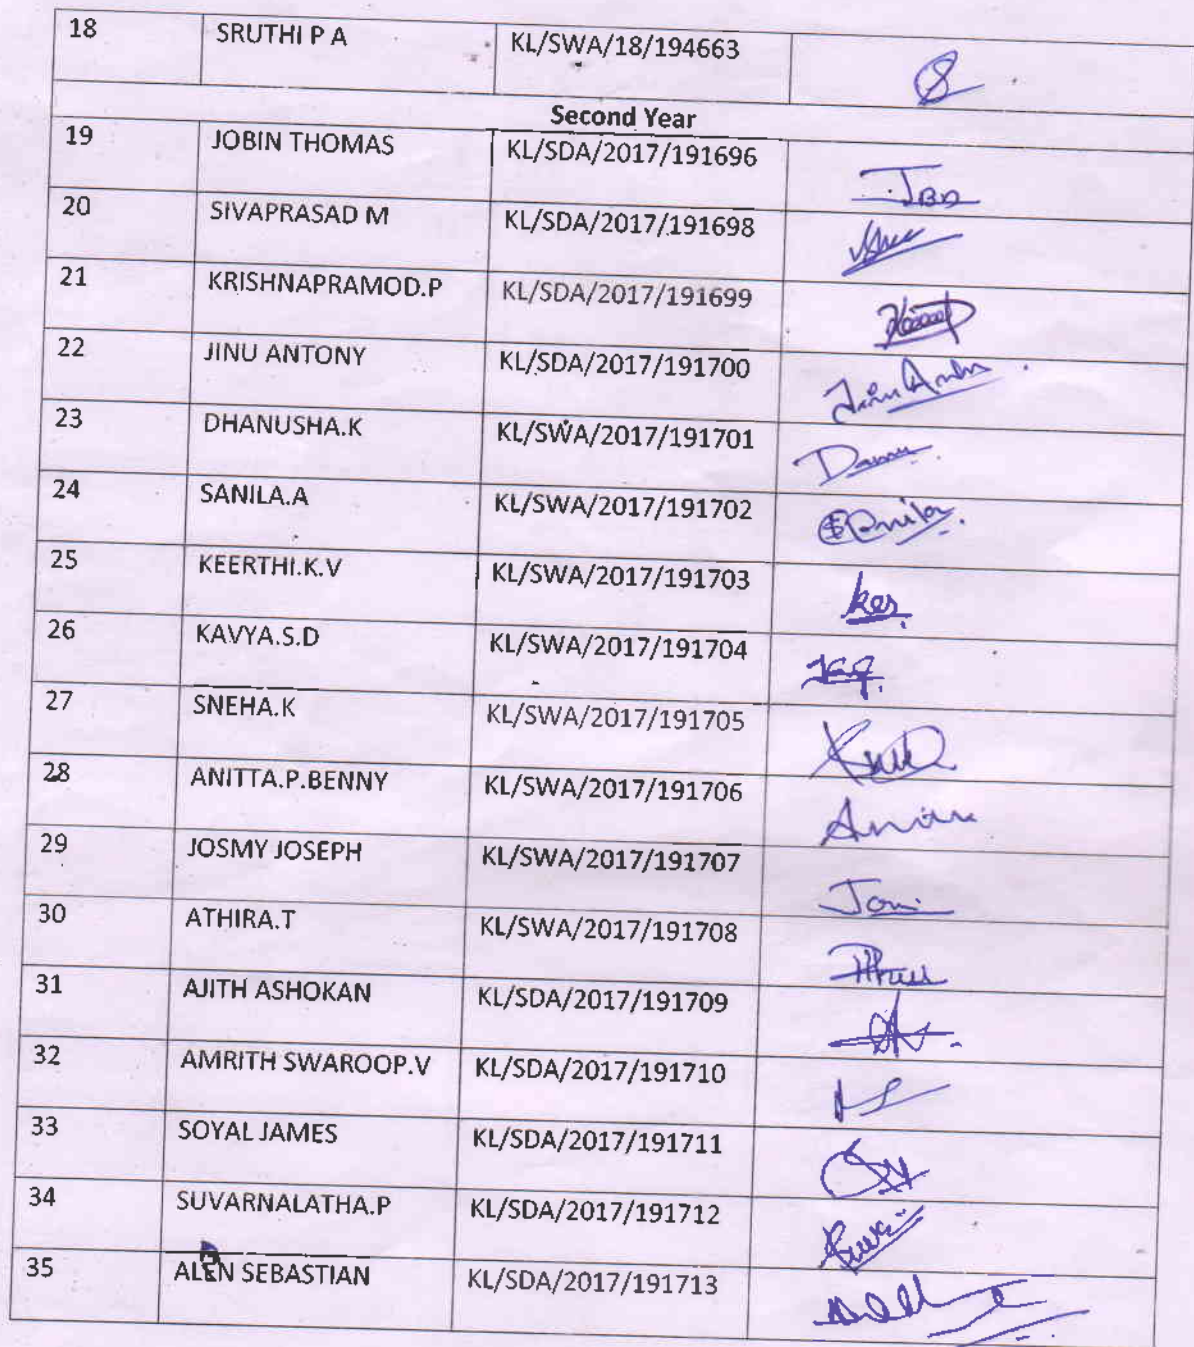 18 SRUTHI P A KL/SWA/18/194663
Second Year
19 JOBIN THOMAS KL/SDA/2017/191696
20 SIVAPRASAD M KL/SDA/2017/191698
21 KRISHNAPRAMOD.P KL/SDA/2017/191699
22 JINU ANTONY KL/SDA/2017/191700
23 DHANUSHA.K KL/SWA/2017/191701
24 SANILA.A KL/SWA/2017/191702
25 KEERTHI.K.V KL/SWA/2017/191703
26 KAVYA.S.D KL/SWA/2017/191704
27 SNEHA.K KL/SWA/2017/191705
28 ANITTA.P.BENNY KL/SWA/2017/191706
29 JOSMY JOSEPH KL/SWA/2017/191707
30 ATHIRA.T KL/SWA/2017/191708
31 AJITH ASHOKAN KL/SDA/2017/191709
32 AMRITH SWAROOP.V KL/SDA/2017/191710
33 SOYAL JAMES KL/SDA/2017/191711
34 SUVARNALATHA.P KL/SDA/2017/191712
35 ALEN SEBASTIAN KL/SDA/2017/191713